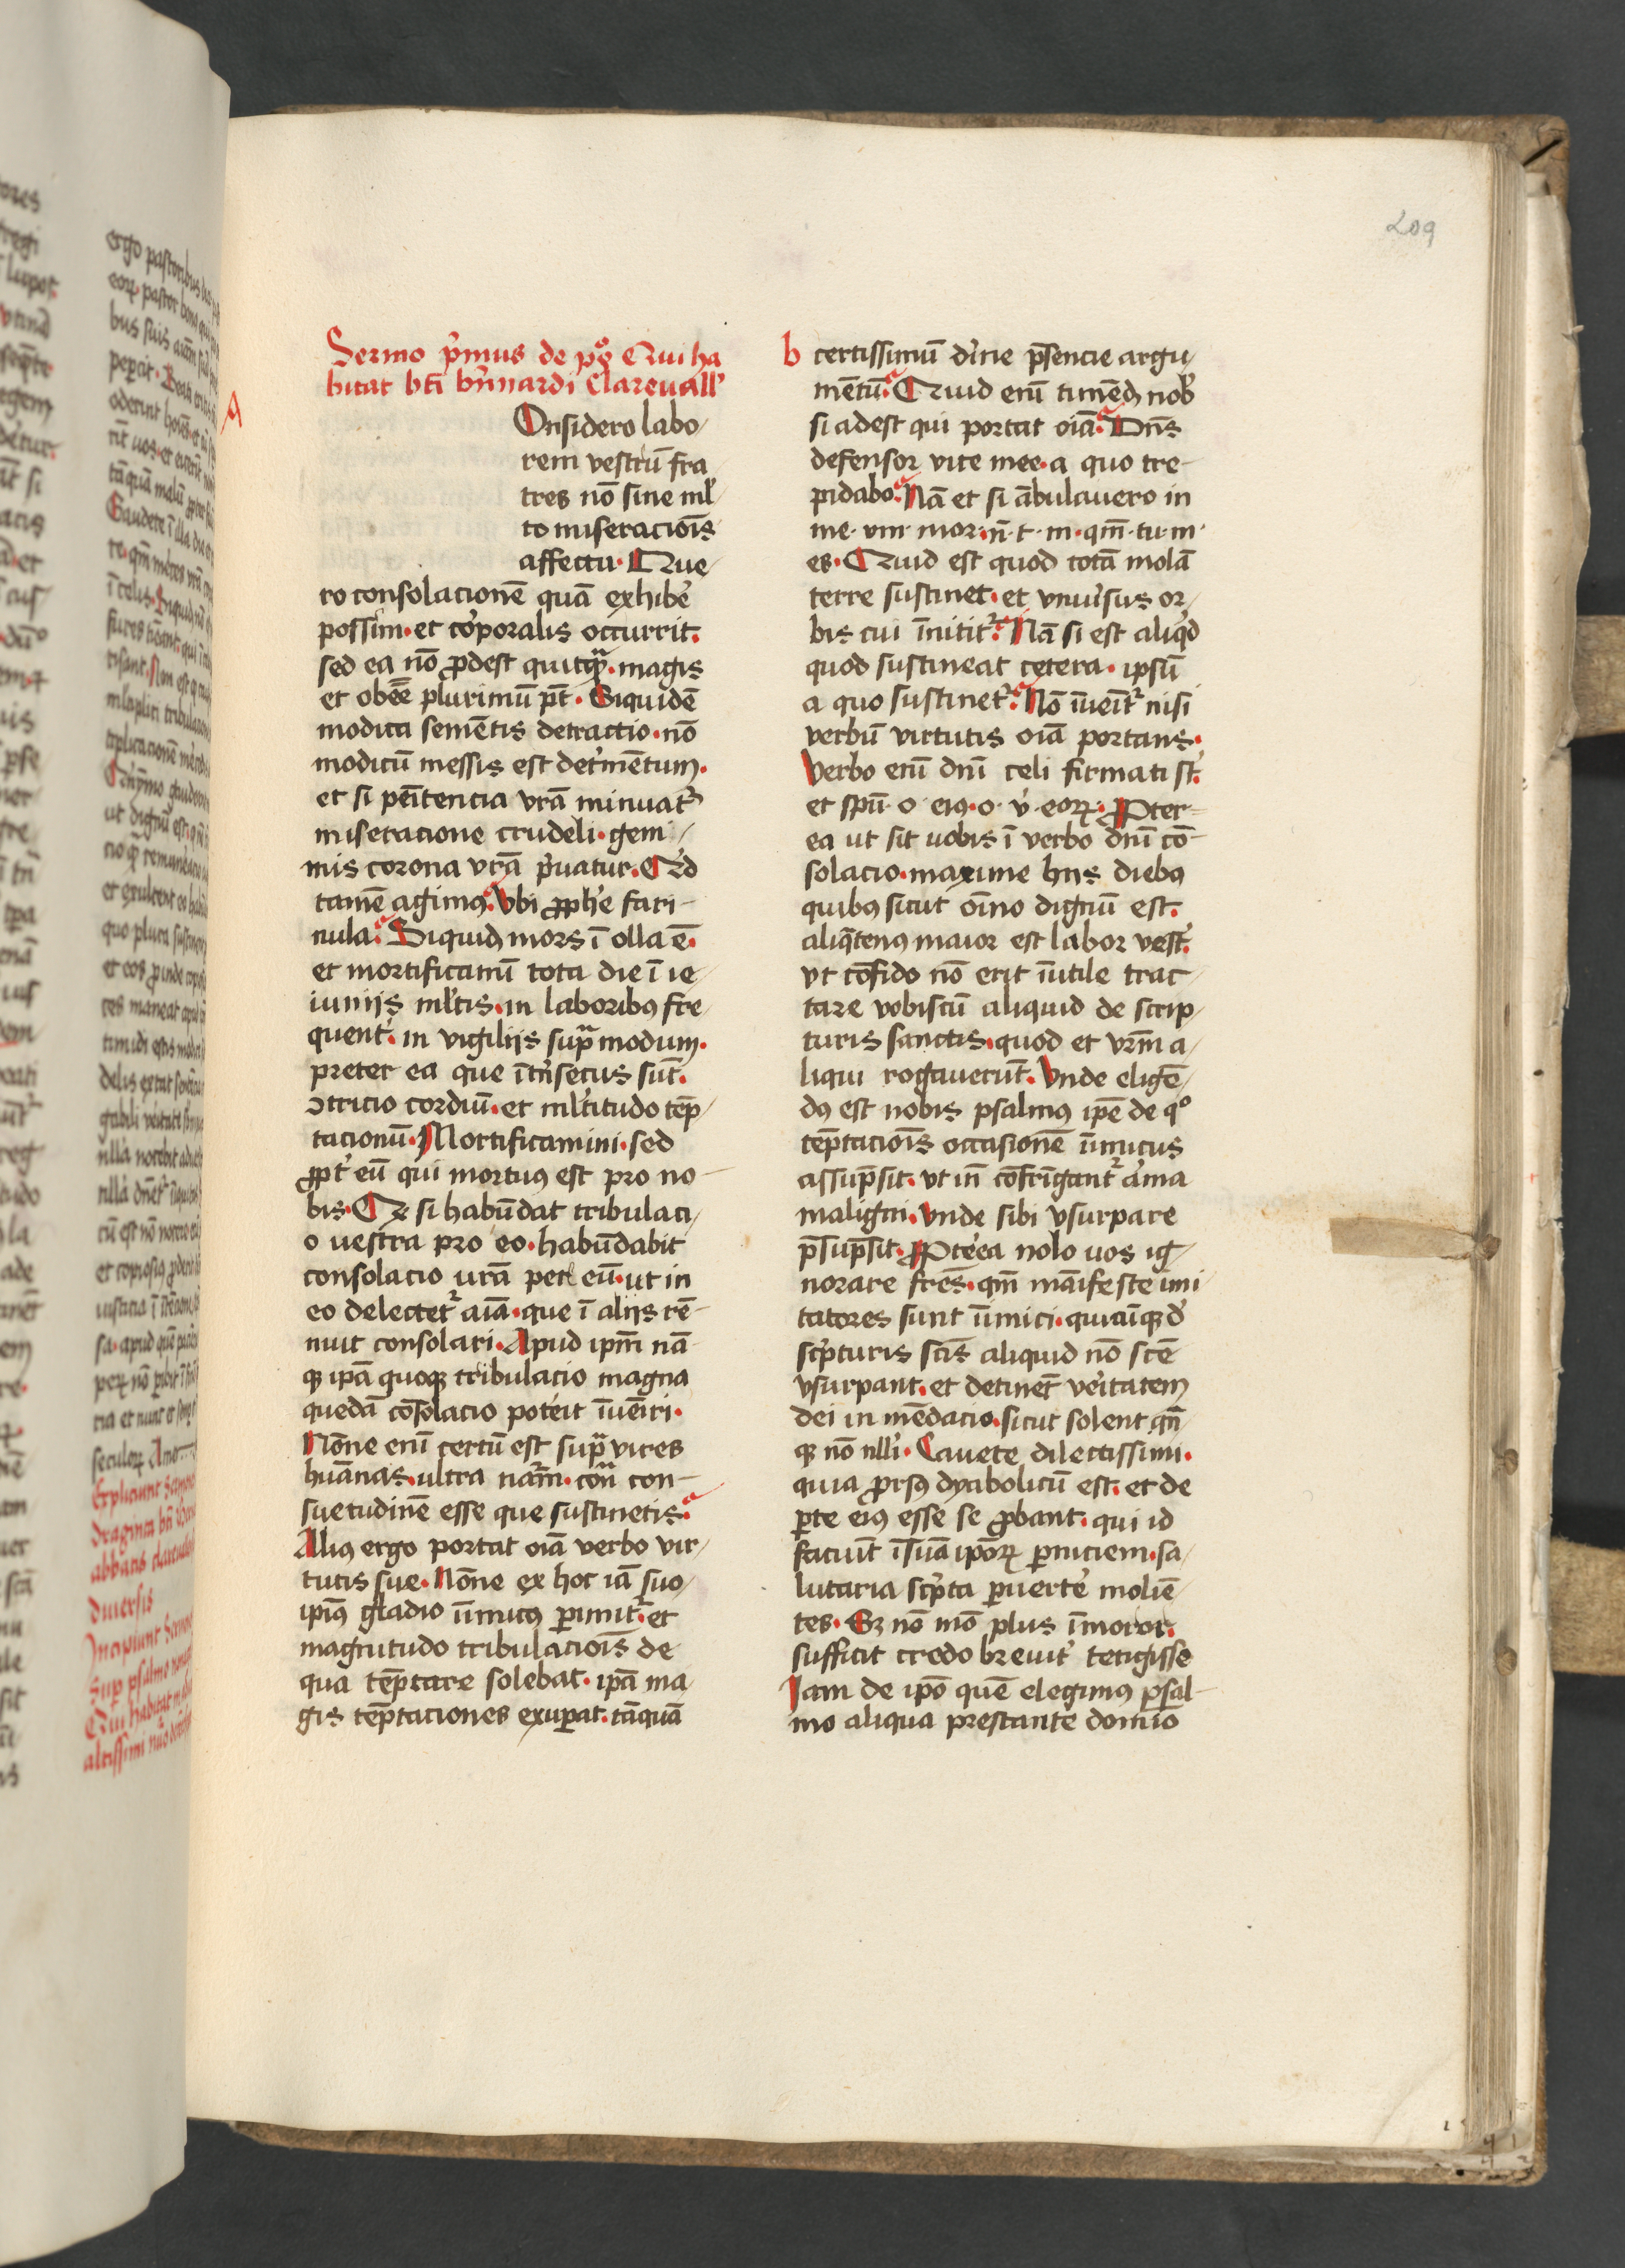 209
Sermo p̓mus de pͦs Qui ha
bitat bt̄i bn̓nardi Clareuall̓
Onsidero labo/
rem vestrū fra
tres nō sine ml̓
to miseracioīs
affectu · Que/
ro consolacionē quā exhibe̓
possim · et co̓poralis occurrit.
sed ea nō ꝓdest quicqᷓ · magis
et obeē̄ plurimū pt̄ · Siquidē
modica semētis detractio · nō
modicū messis est det̓mētum.
et si peītencia vrā minuat᷑
miseracione crudeli · gem/
mis corona vrā p̓uatur. Qd
tamē agimꝰ. Vbi ꝓphe̓ fari-
nula. Siquidē mors ī olla ē.
et mortificamī tota die ī ie/
iuniis ml̓tis · in laboribꝰ fre/
quent̓. in vigiliis supᷓ modum.
preter ea que īt̓nsecus sūt.
ↄtricio cordiū · et ml̓titudo tēp/
tacionū. Mortificamini · sed
ꝓpt̓ eū qui mortuꝰ est pro no-
bis · Qꝫ si habūdat tribulaci/
o vestra pro eo · habūdabit
consolacio urā per eū · ut in
eo delectet᷑ aīa · que ī aliis rē-
nuit consolari. Apud ipm̄ nā-
qꝫ ipā quoqꝫ tribulacio magna
quedā cōsolacio pote̓it īueīri.
Nōne eni̅ certū est supᷓ vires
huānas · ultra nar̄m · con̄ᷓ con-
suetudinē esse que sustinetis.
Aliꝰ ergo portat oīa verbo vir/
tutis sue · Nōne ex hoc iā suo/
ipiꝰ gladio īimicꝰ ꝑimit᷑. et
magnitudo tribulacioīs de
qua tēptare solebat · ipā ma/
gis tēptaciones exuꝑat. tāquā
b certissimū di̓ne p̄sencie argu/
mētū. Quid eni̅ timēdꝫ nob̓
si adest qui portat oīa. Dn̄s
defensor vite mee · a quo tre-
pidabo. Nā et si ābulauero in
me · vm · mor · n̄ · t · m · qm̄ · tu · m ·
es · Quid est quod totā molā
terre sustinet · et vniu̓sus or/
bis cui īnitit᷑. Nā si est aliq̓d
quod sustineat cetera · ipsū
a quo sustinet᷑. Nō īueīt᷑ nisi
verbū virtutis oīa portans ·
Verbo eni̅ dnī celi firmati st̄.
et spū · o · eiꝰ · o · v̓ · eoꝝ · ꝓPter-
ea ut sit uobis ī verbo dnī cō-
solacio · maxime hiis diebꝰ
quibꝰ sicut oīno dignū est.
aliq̄tenꝰ maior est labor vest̓.
vt cōfido nō erit īutile trac/
tare vobiscū aliquid de scrip/
turis sanctis · quod et vrm̄ a/
liqui rogauerūt. Vnde eligē/
dꝰ est nobis psalmꝰ ipē de qͦ
tēptacioīs occasionē īimicus
assūpsit. vt in̄ cōfrīgant᷑ a̓ma
maligni. Vnde sibi vsurpare
p̄sūpsit. ꝓPte̓ea nolo uos ig/
norare frēs · qm̄ māifeste imi
tatores sunt īimici · quicūqꝫ d̓
scp̓turis scīs aliquid nō scē
vsurpant · et detinēt ve̓itatem
dei in mēdacio · sicut solent qn̄
qꝫ nō nll̓i · Cauete dilectissimi ·
quia ꝓrsꝰ dyabolicū est · et de
ꝑte eiꝰ esse se ꝓbant · qui id
faciūt īsuā ipōꝝ ꝑniciem · sa/
lutaria scp̓ta ꝑuerte̓ moliē
tes · Sꝫ nō mō plus īmoror.
sufficit credo breuit̓ tetigisse
Iam de ipō quē elegimꝰ psal-
mo aliqua prestante domīo